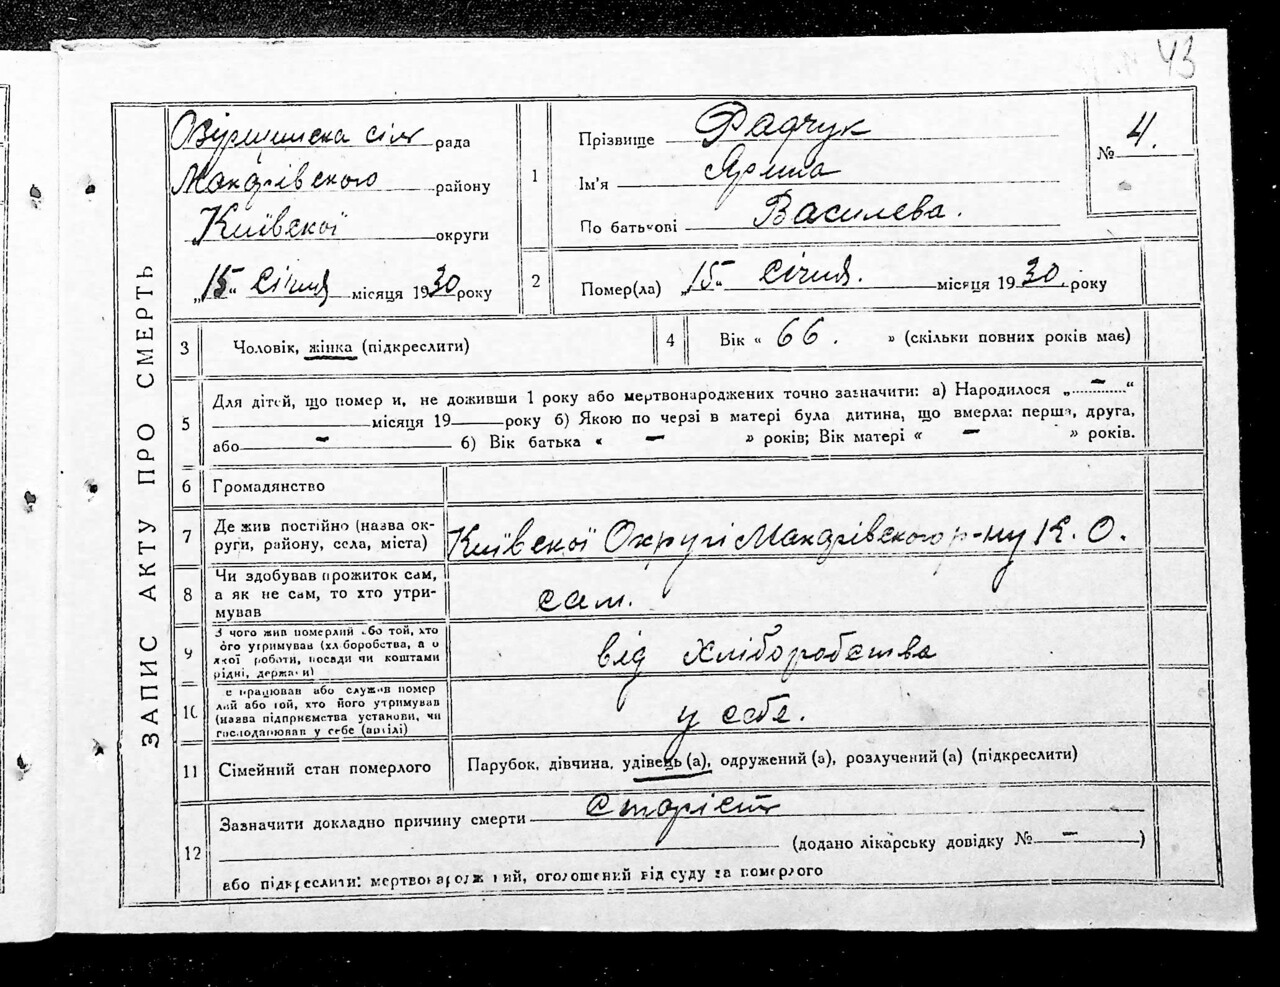 43
ЗАПИС АКТУ ПРО СМЕРТЬ
сіль рада
району
Київскої округи
„15“ Січня місяця 1930 року
1
Прізвище Радчук
Ім'я Ярина
По батькові Василева.
№ 4.
2
Помер(ла) „15“ Січня. місяця 1930 року
3
Чоловік, жінка (підкреслити)
4
Вік « 66. » (скільки повних років мав)
5
Для дітей, що помер и, не доживши 1 року або мертвонароджених точно зазначити: а) Народилося „ – “
місяця 19 року б) Якою по черзі в матері була дитина, що вмерла: перша, друга,
або – б) Вік батька « – » років; Вік матері « – » років.
6
Громадянство
7
Де жив постійно (назва ок-
руги, району, села, міста)
Київскої Округі р-ну К. О.
8
Чи здобував прожиток сам,
а як не сам, то хто утри-
мував
сам.
9
З чого жив померлий або той, хто
його утримував (хліборобства, а о
якої роботи, посади чи коштами
рідні, держави)
від Хліборобства
10
е працював або служив помер
лий або той, хто його утримував
(назва підприємства установи, чи
господарював у себе (артілі)
у себе.
11
Сімейний стан померлого
Парубок, дівчина, удівець (а), одружений (а), розлучений (а) (підкреслити)
12
Зазначити докладно причину смерти старість
(додано лікарську довідку № – )
або підкреслити: мертвонароджений, оголошений від суду за померлого